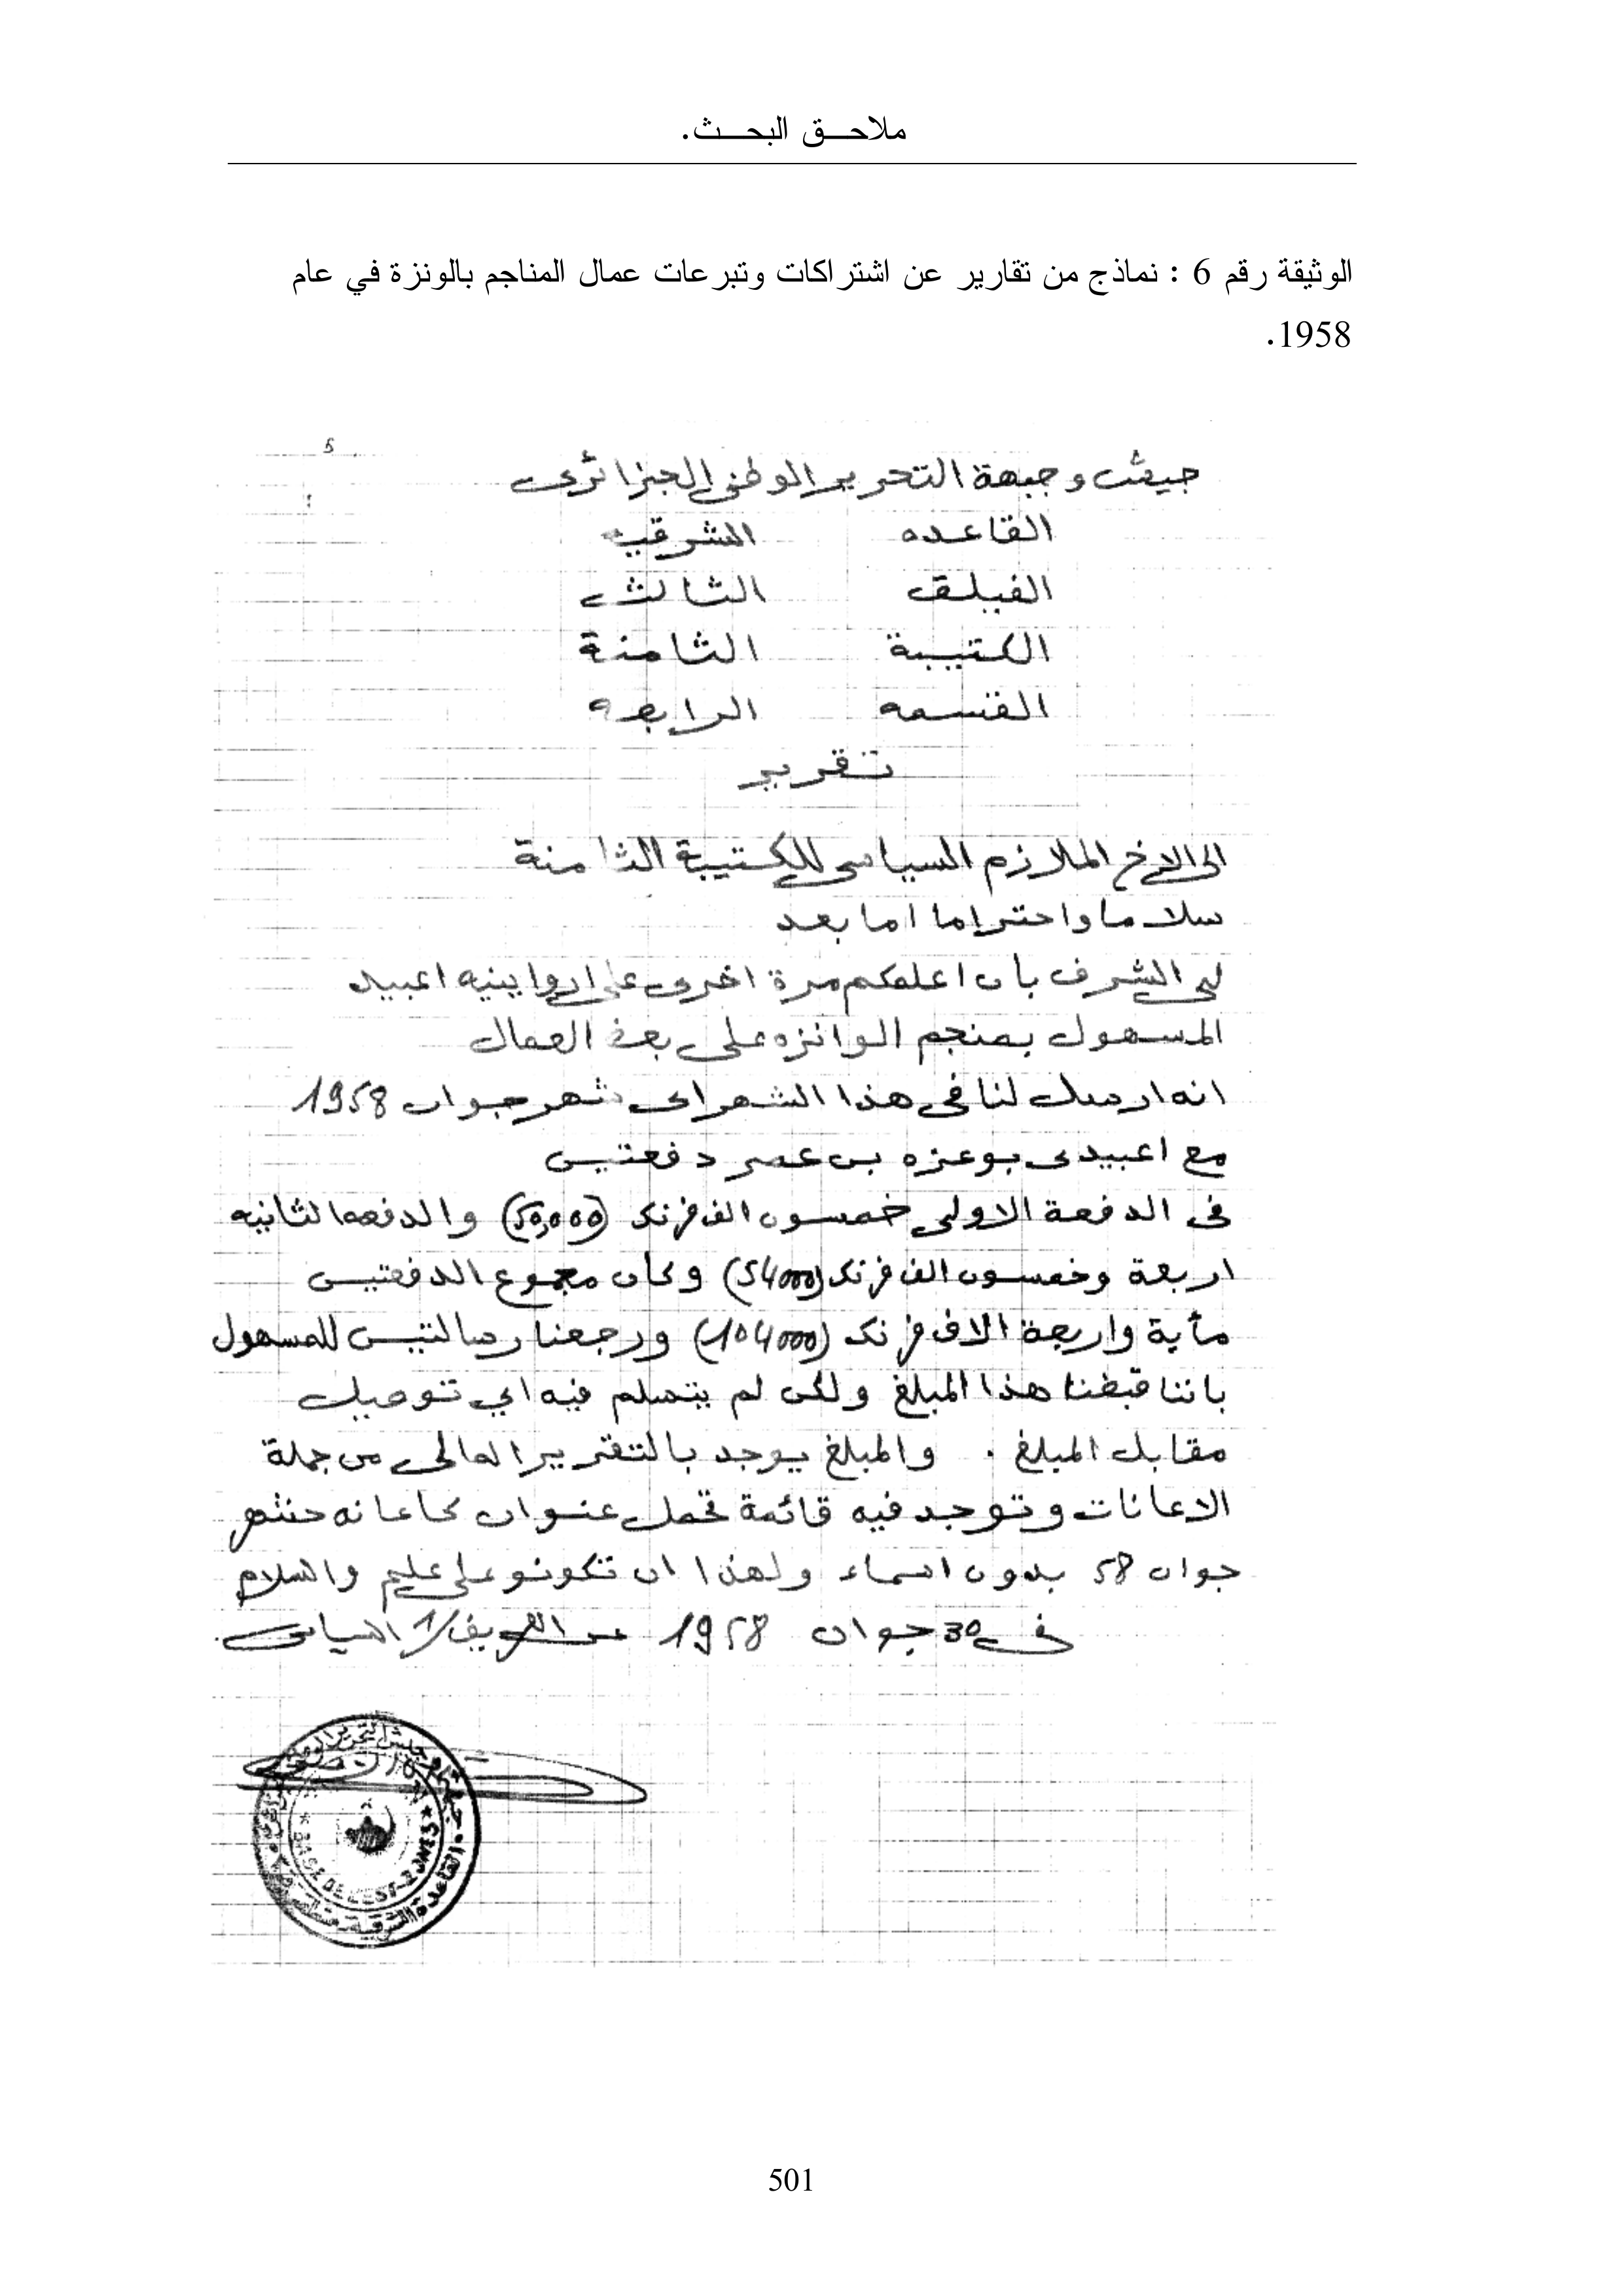 ملاحق البحث.
الوثيقة رقم 6 : نماذج من تقارير عن اشتراكات وتبرعات عمال المناجم بالونزة في عام
1958.
جيش وجبهة التحرير الوطني الجزائري
القاعده الشرقيه
الفيلق الثالث
الكتيبة الثامنة
القسمه الرابعه
تقرير
الى الاخ الملازم السياسي للكتيبة الثامنة
سلاما واحتراما اما بعد
لي الشرف بان اعلمكم مرة اخرى على اعبيد
المسهول بمنجم الوانزه على بعض العمال
انه ارسل لنا في هذا الشهر اي شهر جوان 1958
مع اعبيدي بوعزه بن عمر دفعتين
في الدفعة الاولى خمسون الف فرنك (50,000) والدفعه الثانيه
اربعة وخمسون الف فرنك (54000) وكان مجموع الدفعتين
مأية واربعة الاف فرنك (104000) ورجعنا رسالتين للمسهول
باننا قبضنا هذا المبلغ ولكن لم يتسلم فيه اي توصيل
مقابل المبلغ . والمبلغ يوجد بالتقرير المالي من جملة
الاعانات وتوجد فيه قائمة تحمل عنوان
جوان 58 بدون اسماء ولهذا ان تكونو على علم والسلام
في 30 جوان 1958 عن العريف/1 السياسي.
BASE DE L'EST
501